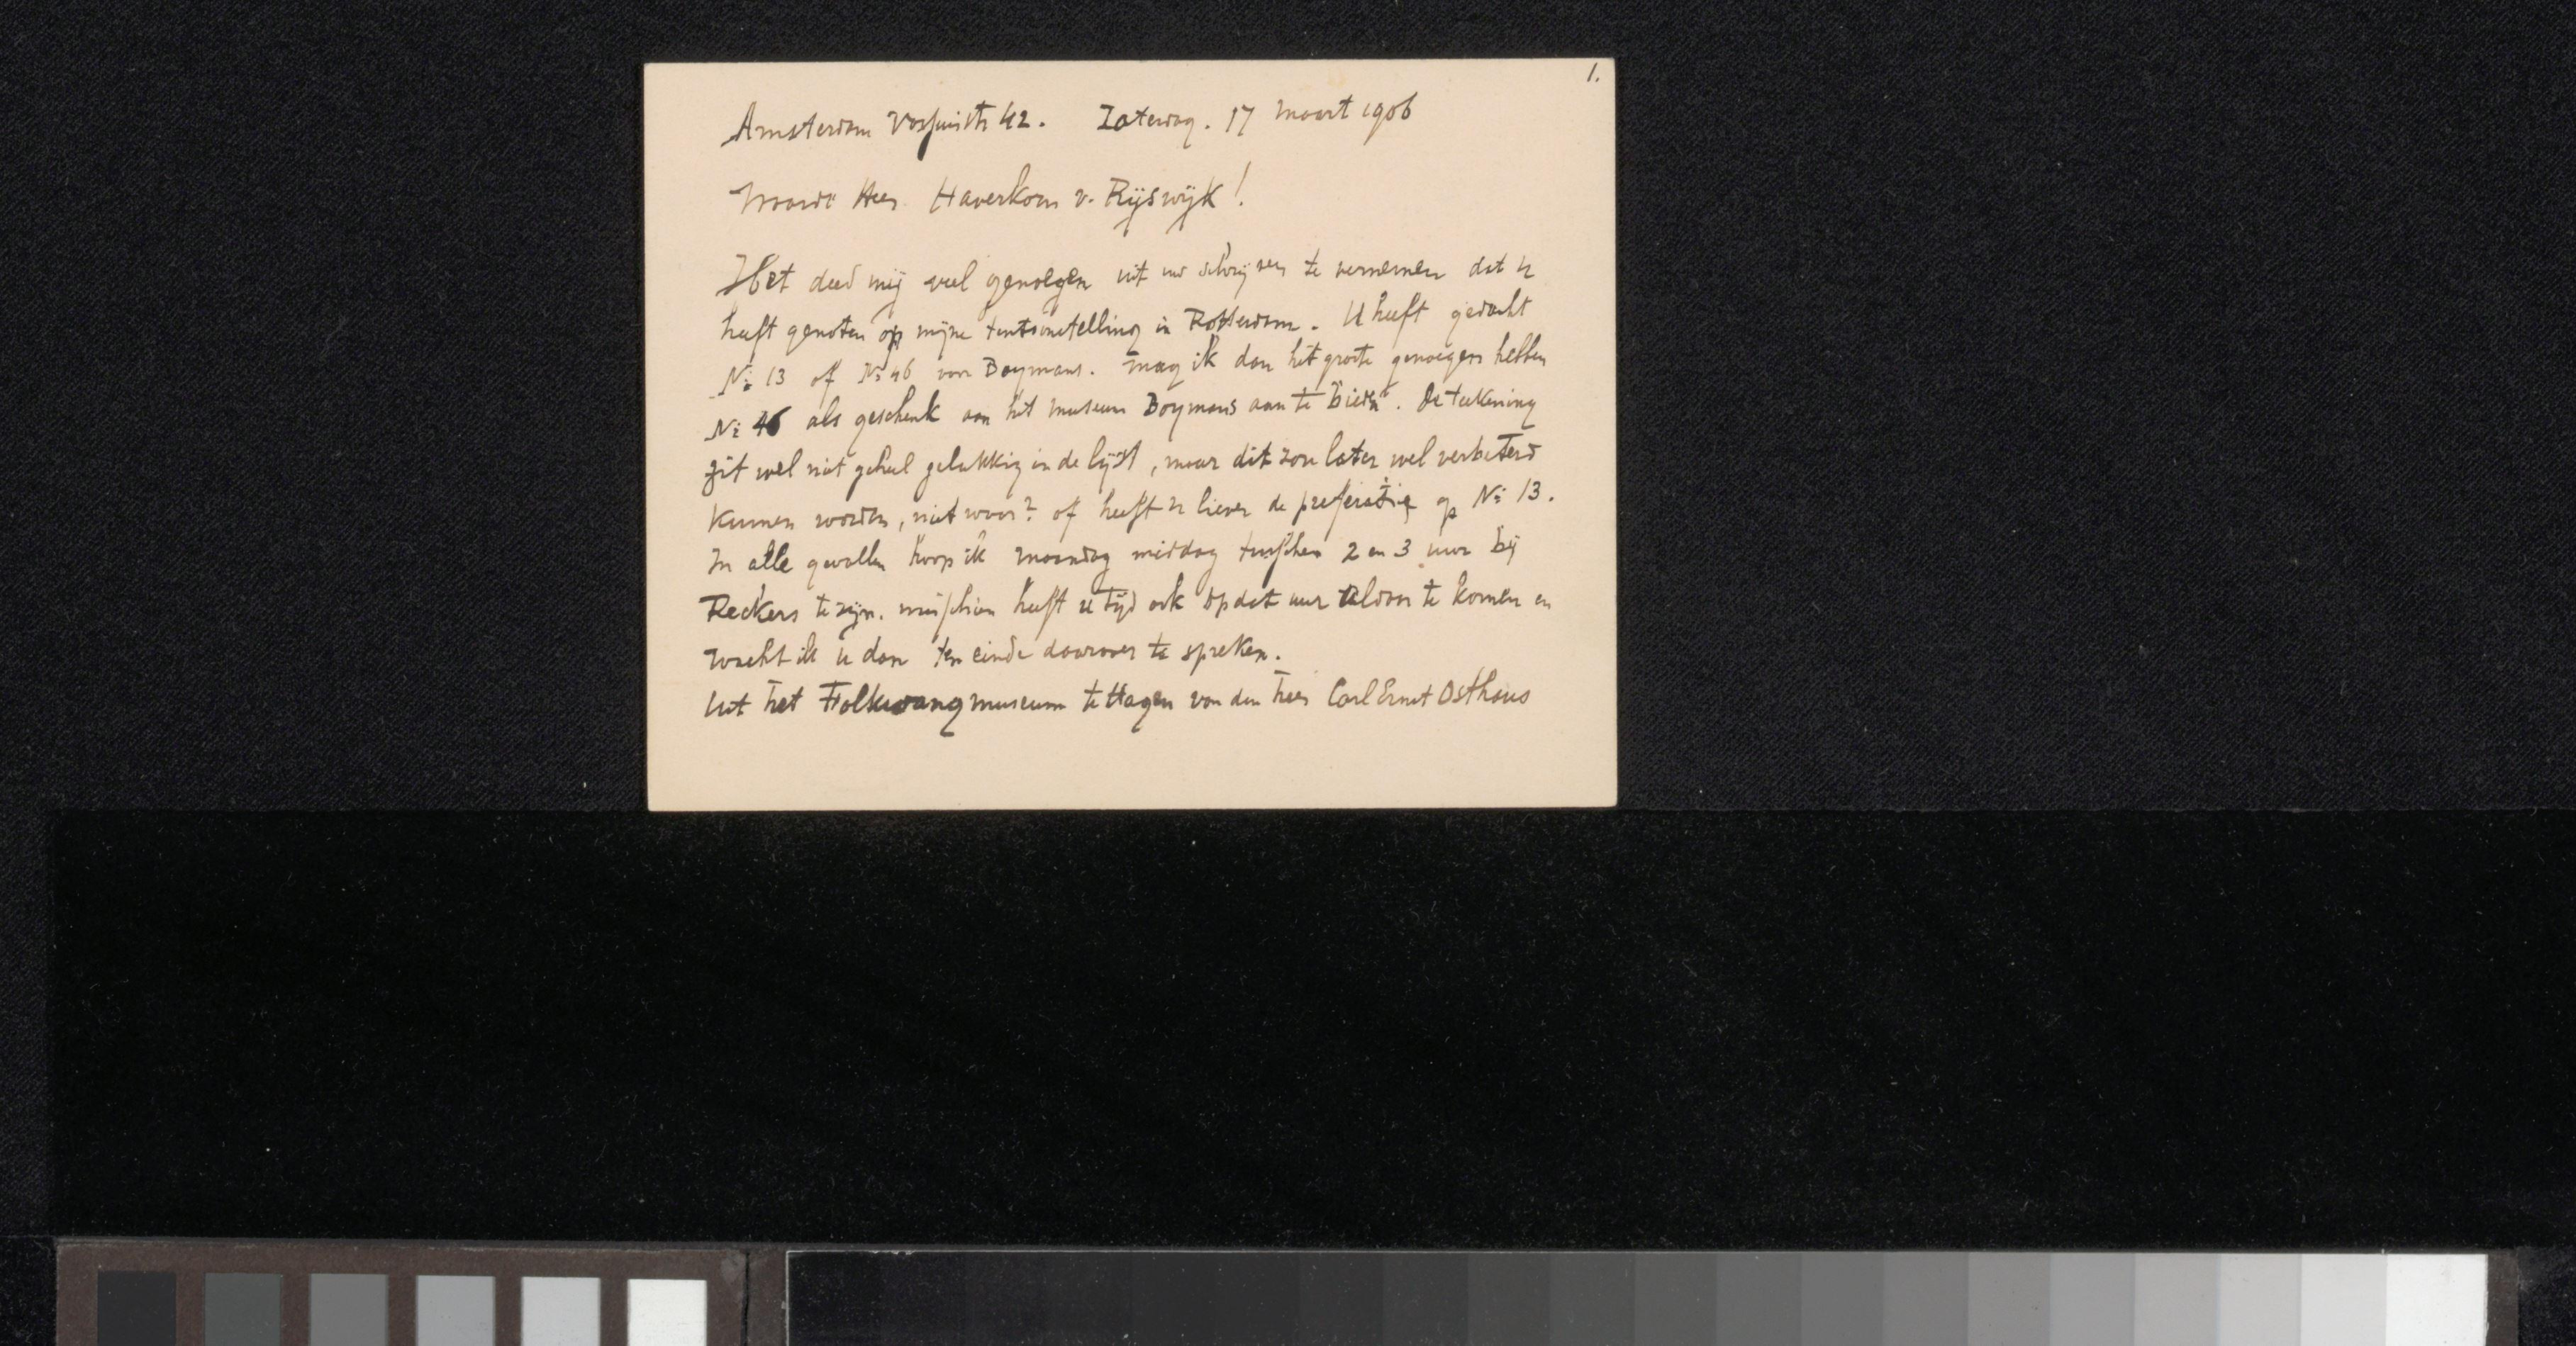 1.
Amsterdam Vossiusstr 42. Zaterdag. 17 Maart 1906
Waarde Heer Haverkorn v. Rijswijk!
Het deed mij veel genoegen uit uw schrijven te vernemen dat u
heeft genoten op mijne tentoonstelling in Rotterdam. U heeft gedacht
No 13 of No 46 voor Boymans. Mag ik dan het groote genoegen hebben
No 46 als geschenk aan het museum Boymans aan te bieden. De teekening
zit wel niet geheel gelukkig in de lijst, maar dit zou later wel verbeterd
kunnen worden, niet waar? of heeft u liever de preferatie op No 13.
In alle gevallen hoop ik maandag middag tusschen 2 en 3 uur bij
Reckers te zijn. misschien heeft u tijd ook op dat uur aldaar te komen en
wacht ik u dan ten einde daarover te spreken.
Uit het Folkwang museum te Hagen van den heer Carl Ernst Osthaus